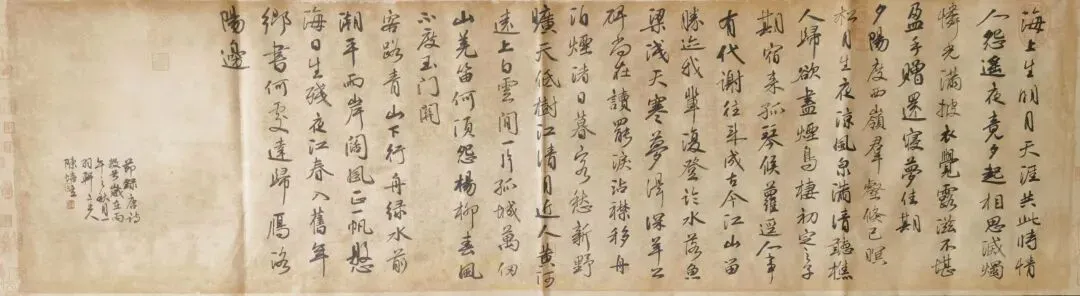 海上生明月天涯共此時情
人怨遥夜竟夕起相思滅燭
憐光滿披衣覺露滋不堪
盈手贈還寢夢佳期
夕陽度西嶺羣壑倏已暝
松月生夜涼風泉滿清聽樵
人歸欲盡煙鳥棲初定之子
期宿来孤琴候蘿逕人事
有代謝往来成古今江山留
勝迹我輩復登臨水落魚
梁淺天寒夢澤深羊公
碑尚在讀罷淚沾襟移舟
泊煙渚日暮客愁新野
曠天低樹江清月近人黄河
遠上白雲間一片孤城萬仞
山羌笛何須怨楊柳春風
不度玉门関
客路青山下行舟緑水前
潮平兩岸闊風正一帆懸
海日生殘夜江春入舊年
鄉書何處達歸雁洛
陽邊
節録唐詩
數首歲在丙
年之秋月